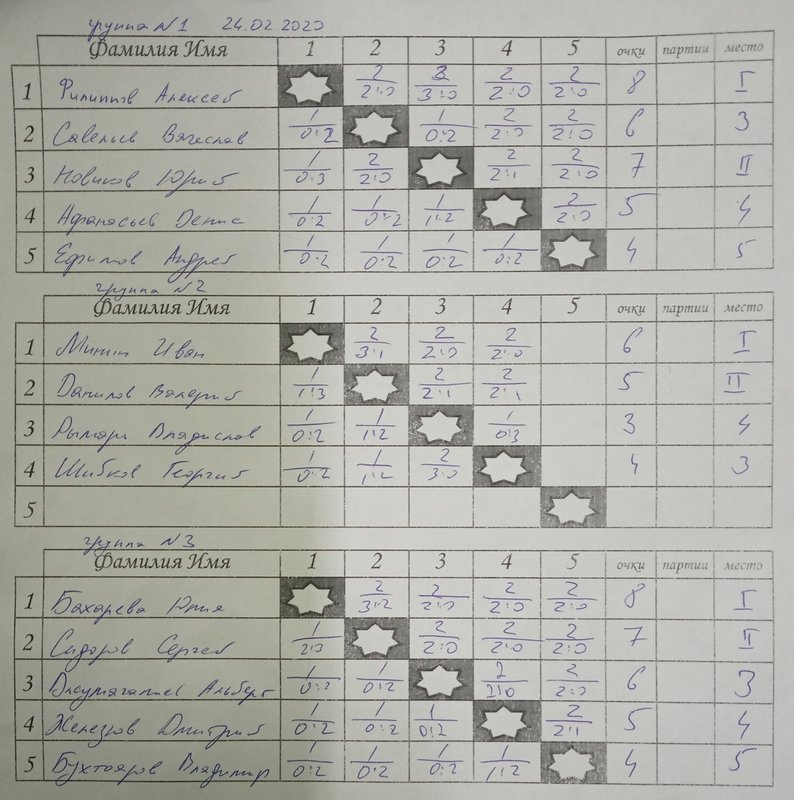 группа №1 24.02.2020
Фамилия Имя 1 2 3 4 5 очки партии место
1 Филиппов Алексей 2 2:0 2 3:0 2 2:0 2 2:0 8 I
2 Савельев Вячеслав 1 0:2 1 0:2 2 2:0 2 2:0 6 3
3 Новиков Юрий 1 0:3 2 2:0 2 2:1 2 2:0 7 II
4 Афанасьев Денис 1 0:2 1 0:2 1 1:2 2 2:0 5 4
5 Ефимов Андрей 1 0:2 1 0:2 1 0:2 1 0:2 4 5
группа №2
Фамилия Имя 1 2 3 4 5 очки партии место
1 Минин Иван 2 3:1 2 2:0 2 2:0 6 I
2 Данилов Валерий 1 1:3 2 2:1 2 2:1 5 II
3 Рымарь Владислав 1 0:2 1 1:2 1 0:3 3 4
4 Шибков Георгий 1 0:2 1 1:2 2 3:0 4 3
5
группа №3
Фамилия Имя 1 2 3 4 5 очки партии место
1 Бахарева Юлия 2 3:2 2 2:0 2 2:0 2 2:0 8 I
2 Сидоров Сергей 1 2:3 2 2:0 2 2:0 2 2:0 7 II
3 Джумагалиев Альберт 1 0:2 1 0:2 2 2:0 2 2:0 6 3
4 Железнов Дмитрий 1 0:2 1 0:2 1 0:2 2 2:1 5 4
5 Бухтояров Владимир 1 0:2 1 0:2 1 0:2 1 1:2 4 5